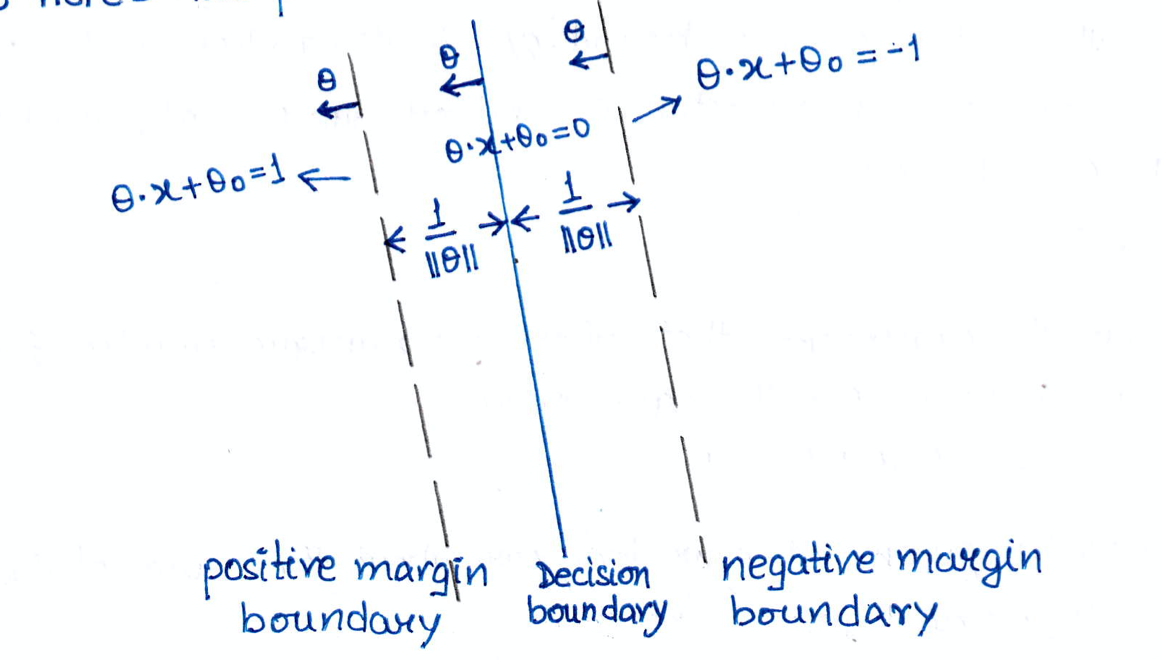 θ
θ
θ
θ·x+θ₀=-1
θ·x+θ₀=0
θ·x+θ₀=1
1/||θ||
1/||θ||
positive margin
boundary
Decision
boundary
negative margin
boundary